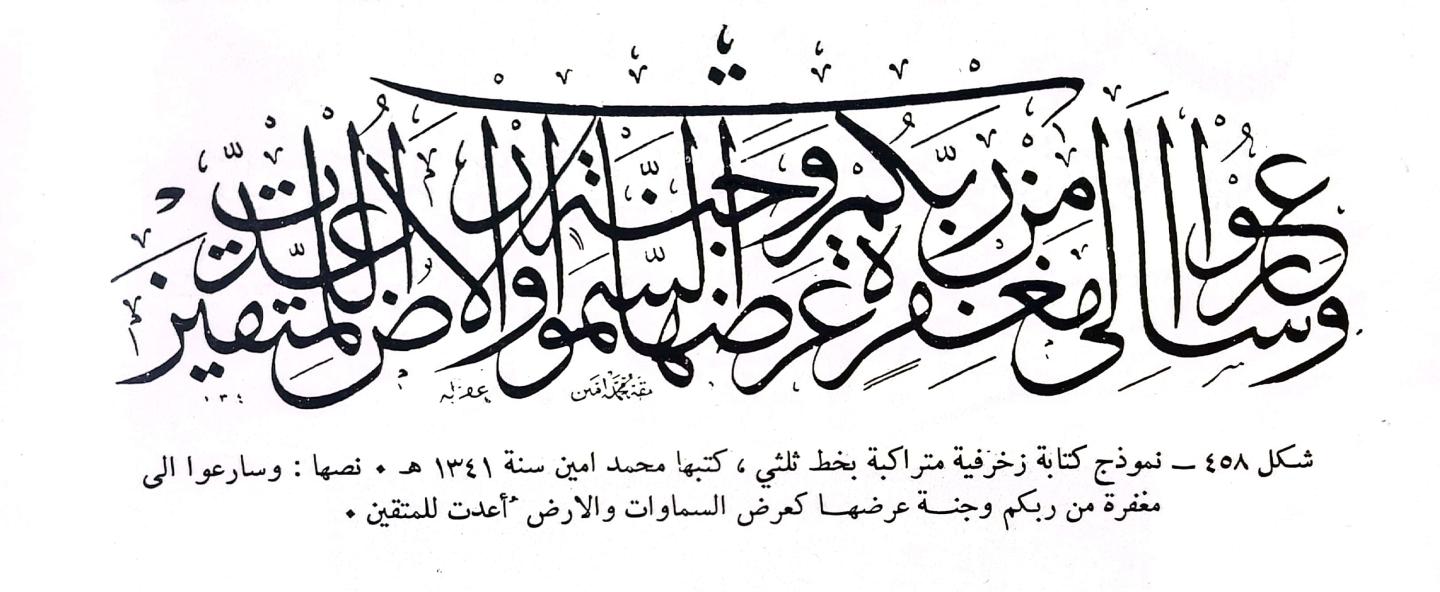 وسارعوا الى مغفرة من ربكم وجنة عرضها السموات والارض اعدت للمتقين
نمقه محمد امين غفر له
شكل ٤٥٨ ــ نموذج كتابة زخرفية متراكبة بخط ثلثي ، كتبها محمد امين سنة ١٣٤١ هـ ٠ نصها : وسارعوا الى
مغفرة من ربكم وجنــة عرضهــا كعرض السماوات والارض أُعدت للمتقين ٠